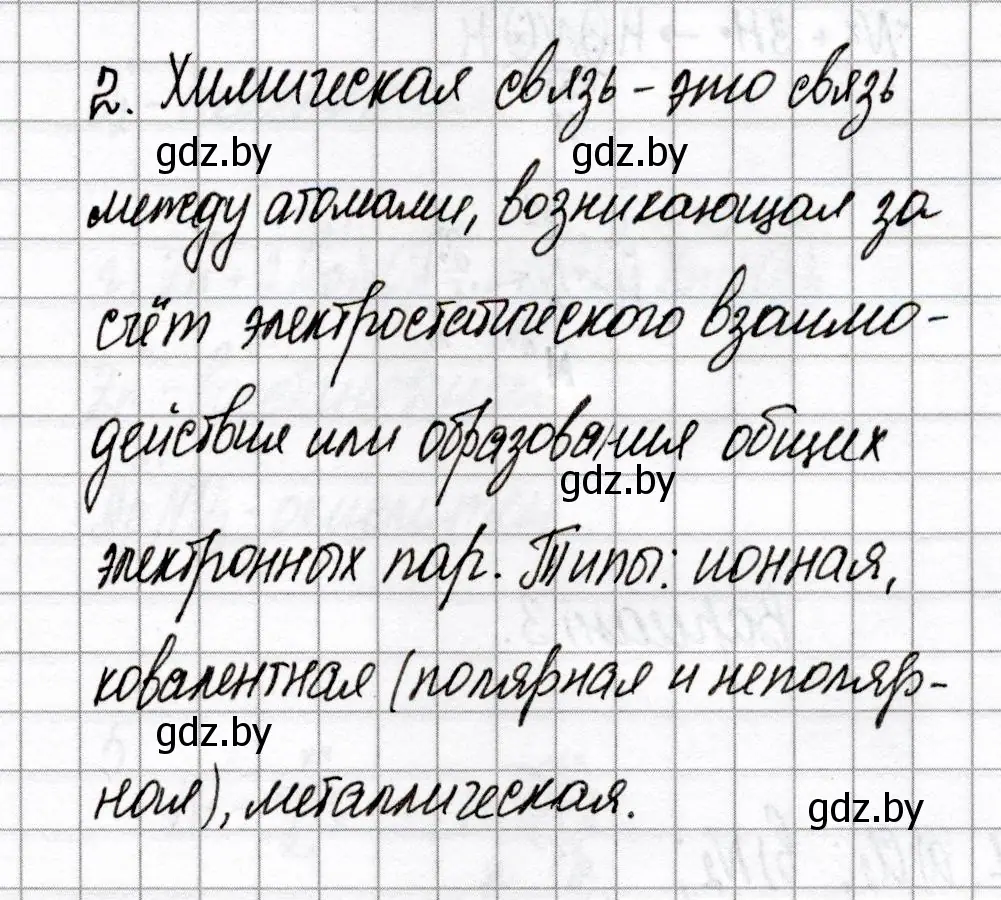 2. Химическая связь - это связь
gdz.by gdz.by
между атомами, возникающая за
счёт электростатического взаимо-
действия или образования общих
gdz.by
электронных пар. Типы: ионная,
ковалентная (полярная и неполяр-
gdz.by
ная), металлическая.
gdz.by